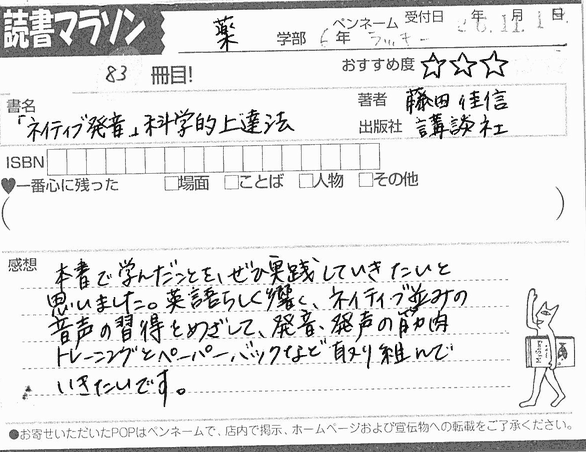 読書マラソン
薬 学部 6年 ペンネーム ラッキー 受付日 年 月 日
83 冊目!
おすすめ度 ☆☆☆
書名
「ネイティブ発音」科学的上達法
著者 藤田佳信
出版社 講談社
ISBN
♥一番心に残った □場面 □ことば □人物 □その他
感想
本書で学んだことを、ぜひ実践していきたいと
思いました。英語らしく響く、ネイティブ並みの
音声の習得をめざして、発音、発声の筋肉
トレーニングとペーパーバックなど取り組んで
いきたいです。
●お寄せいただいたPOPはペンネームで、店内で掲示、ホームページおよび宣伝物への転載をご了承ください。